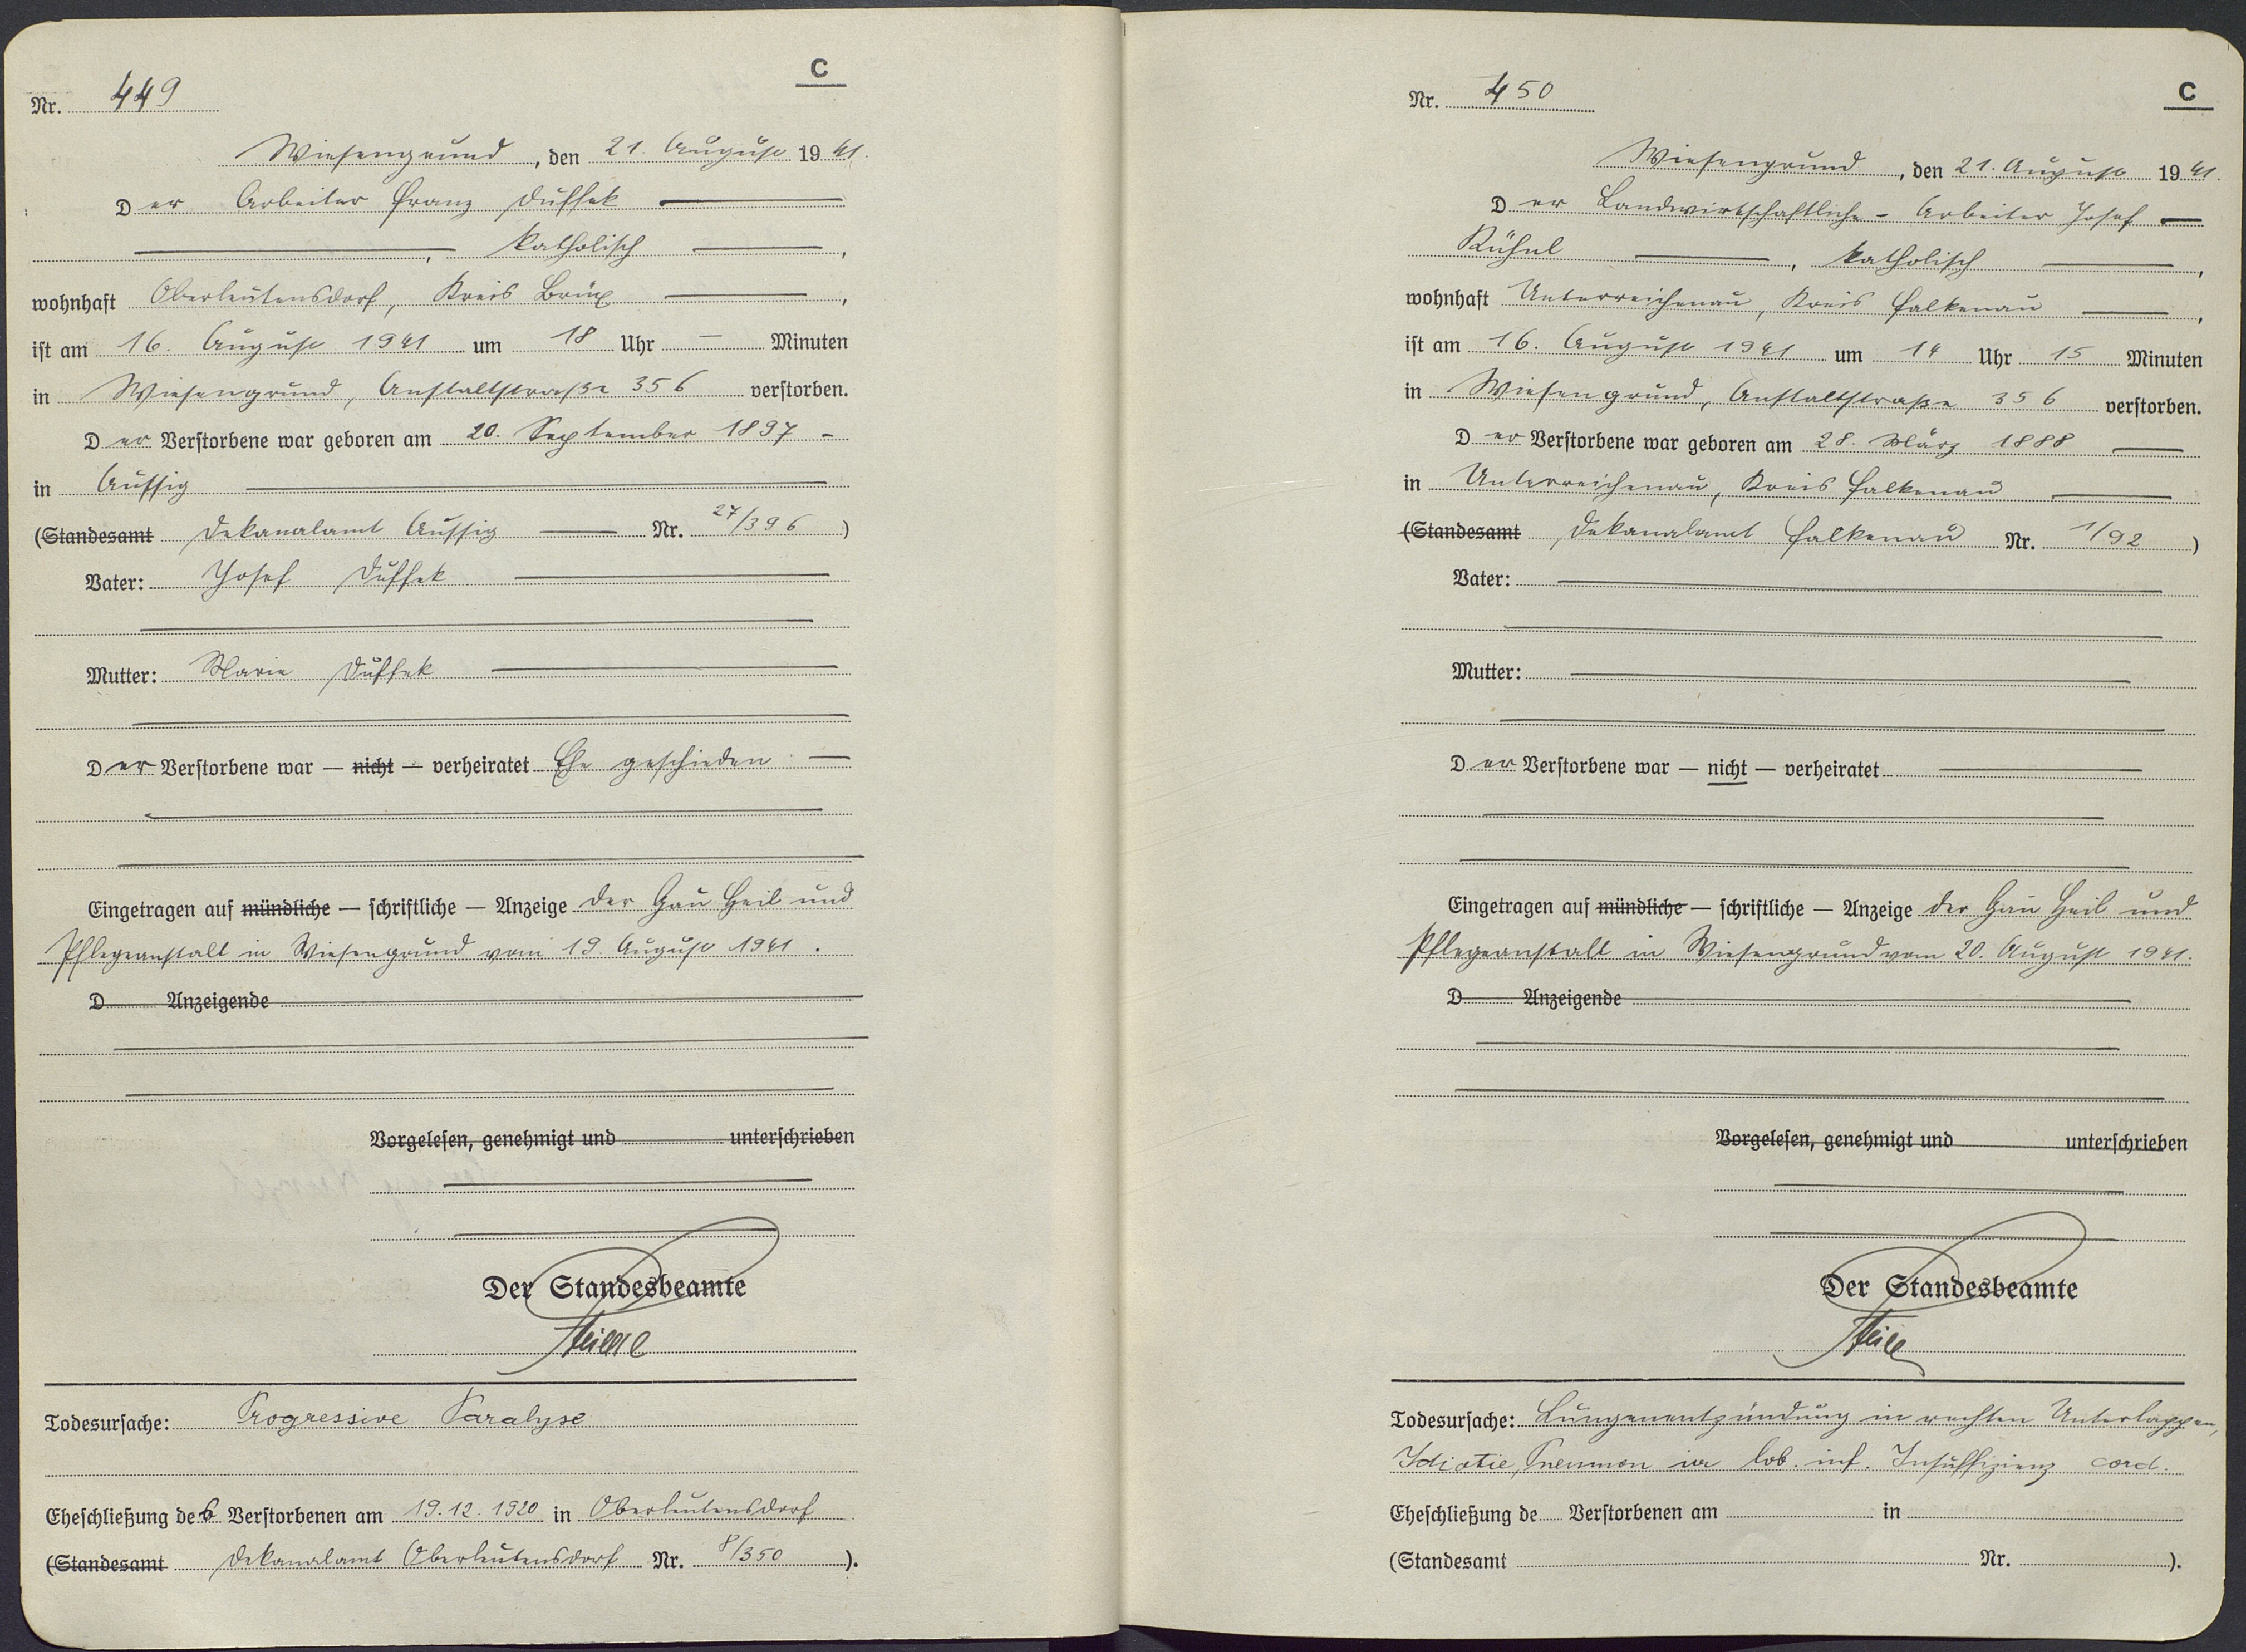 C
Nr. 449
Wiesengrund, den 21. August 1941.
Der Arbeiter Franz Duffek
katholisch,
wohnhaft Oberleutensdorf, Kreis Brüx,
ist am 16. August 1941 um 18 Uhr — Minuten
in Wiesengrund, Anstaltstraße 356 verstorben.
Der Verstorbene war geboren am 20. September 1897 -
in Aussig
(Standesamt Dekanalamt Aussig Nr. 27/396)
Vater: Josef Duffek
Mutter: Marie Duffek
Der Verstorbene war — nicht — verheiratet Ehe geschieden —
Eingetragen auf mündliche — schriftliche — Anzeige der Gau Heil und
Pflegeanstalt in Wiesengrund vom 19. August 1941.
D Anzeigende
Vorgelesen, genehmigt und unterschrieben
Der Standesbeamte
Todesursache: Progressive Paralyse
Eheschließung des Verstorbenen am 19.12.1920 in Oberleutensdorf
(Standesamt Dekanalamt Oberleutensdorf Nr. 8/350).
C
Nr. 450
Wiesengrund, den 21. August 1941.
Der Landwirtschaftliche - Arbeiter Josef
Kühnl, katholisch,
wohnhaft Unterreichenau, Kreis Falkenau,
ist am 16. August 1941 um 14 Uhr 15 Minuten
in Wiesengrund, Anstaltstraße 356 verstorben.
Der Verstorbene war geboren am 28. März 1888
in Unterreichenau, Kreis Falkenau
(Standesamt Dekanalamt Falkenau Nr. 1/92)
Vater:
Mutter:
Der Verstorbene war — nicht — verheiratet
Eingetragen auf mündliche — schriftliche — Anzeige der Gau Heil und
Pflegeanstalt in Wiesengrund vom 20. August 1941.
D Anzeigende
Vorgelesen, genehmigt und unterschrieben
Der Standesbeamte
Todesursache: Lungenentzündung in rechten Unterlappen,
Idiotie, Pneumon lob. inf. Insuffizienz cord.
Eheschließung de Verstorbenen am in
(Standesamt Nr. ).